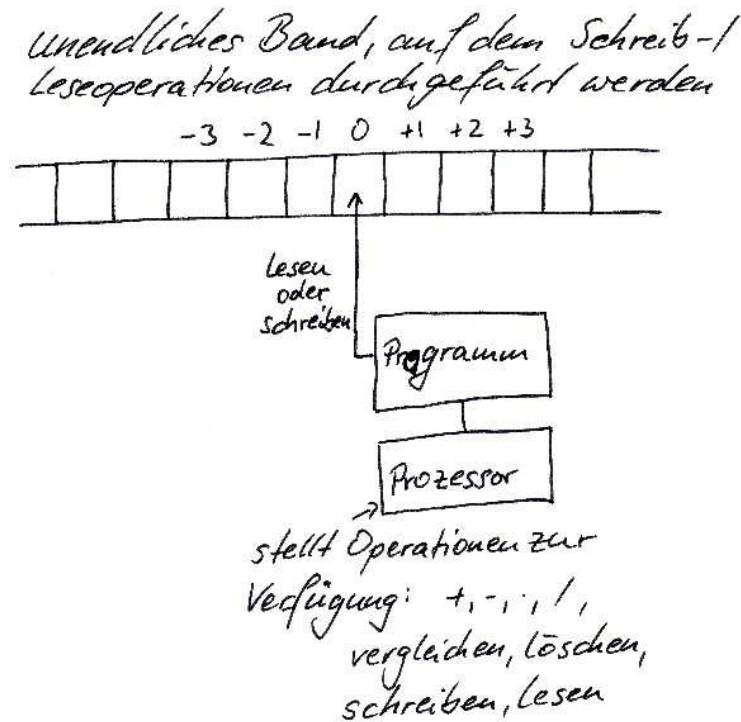 unendliches Band, auf dem Schreib-/
Leseoperationen durchgeführt werden
-3 -2 -1 0 +1 +2 +3
lesen
oder
schreiben
Programm
Prozessor
stellt Operationen zur
Verfügung: +, -, ·, /,
vergleichen, löschen,
schreiben, lesen